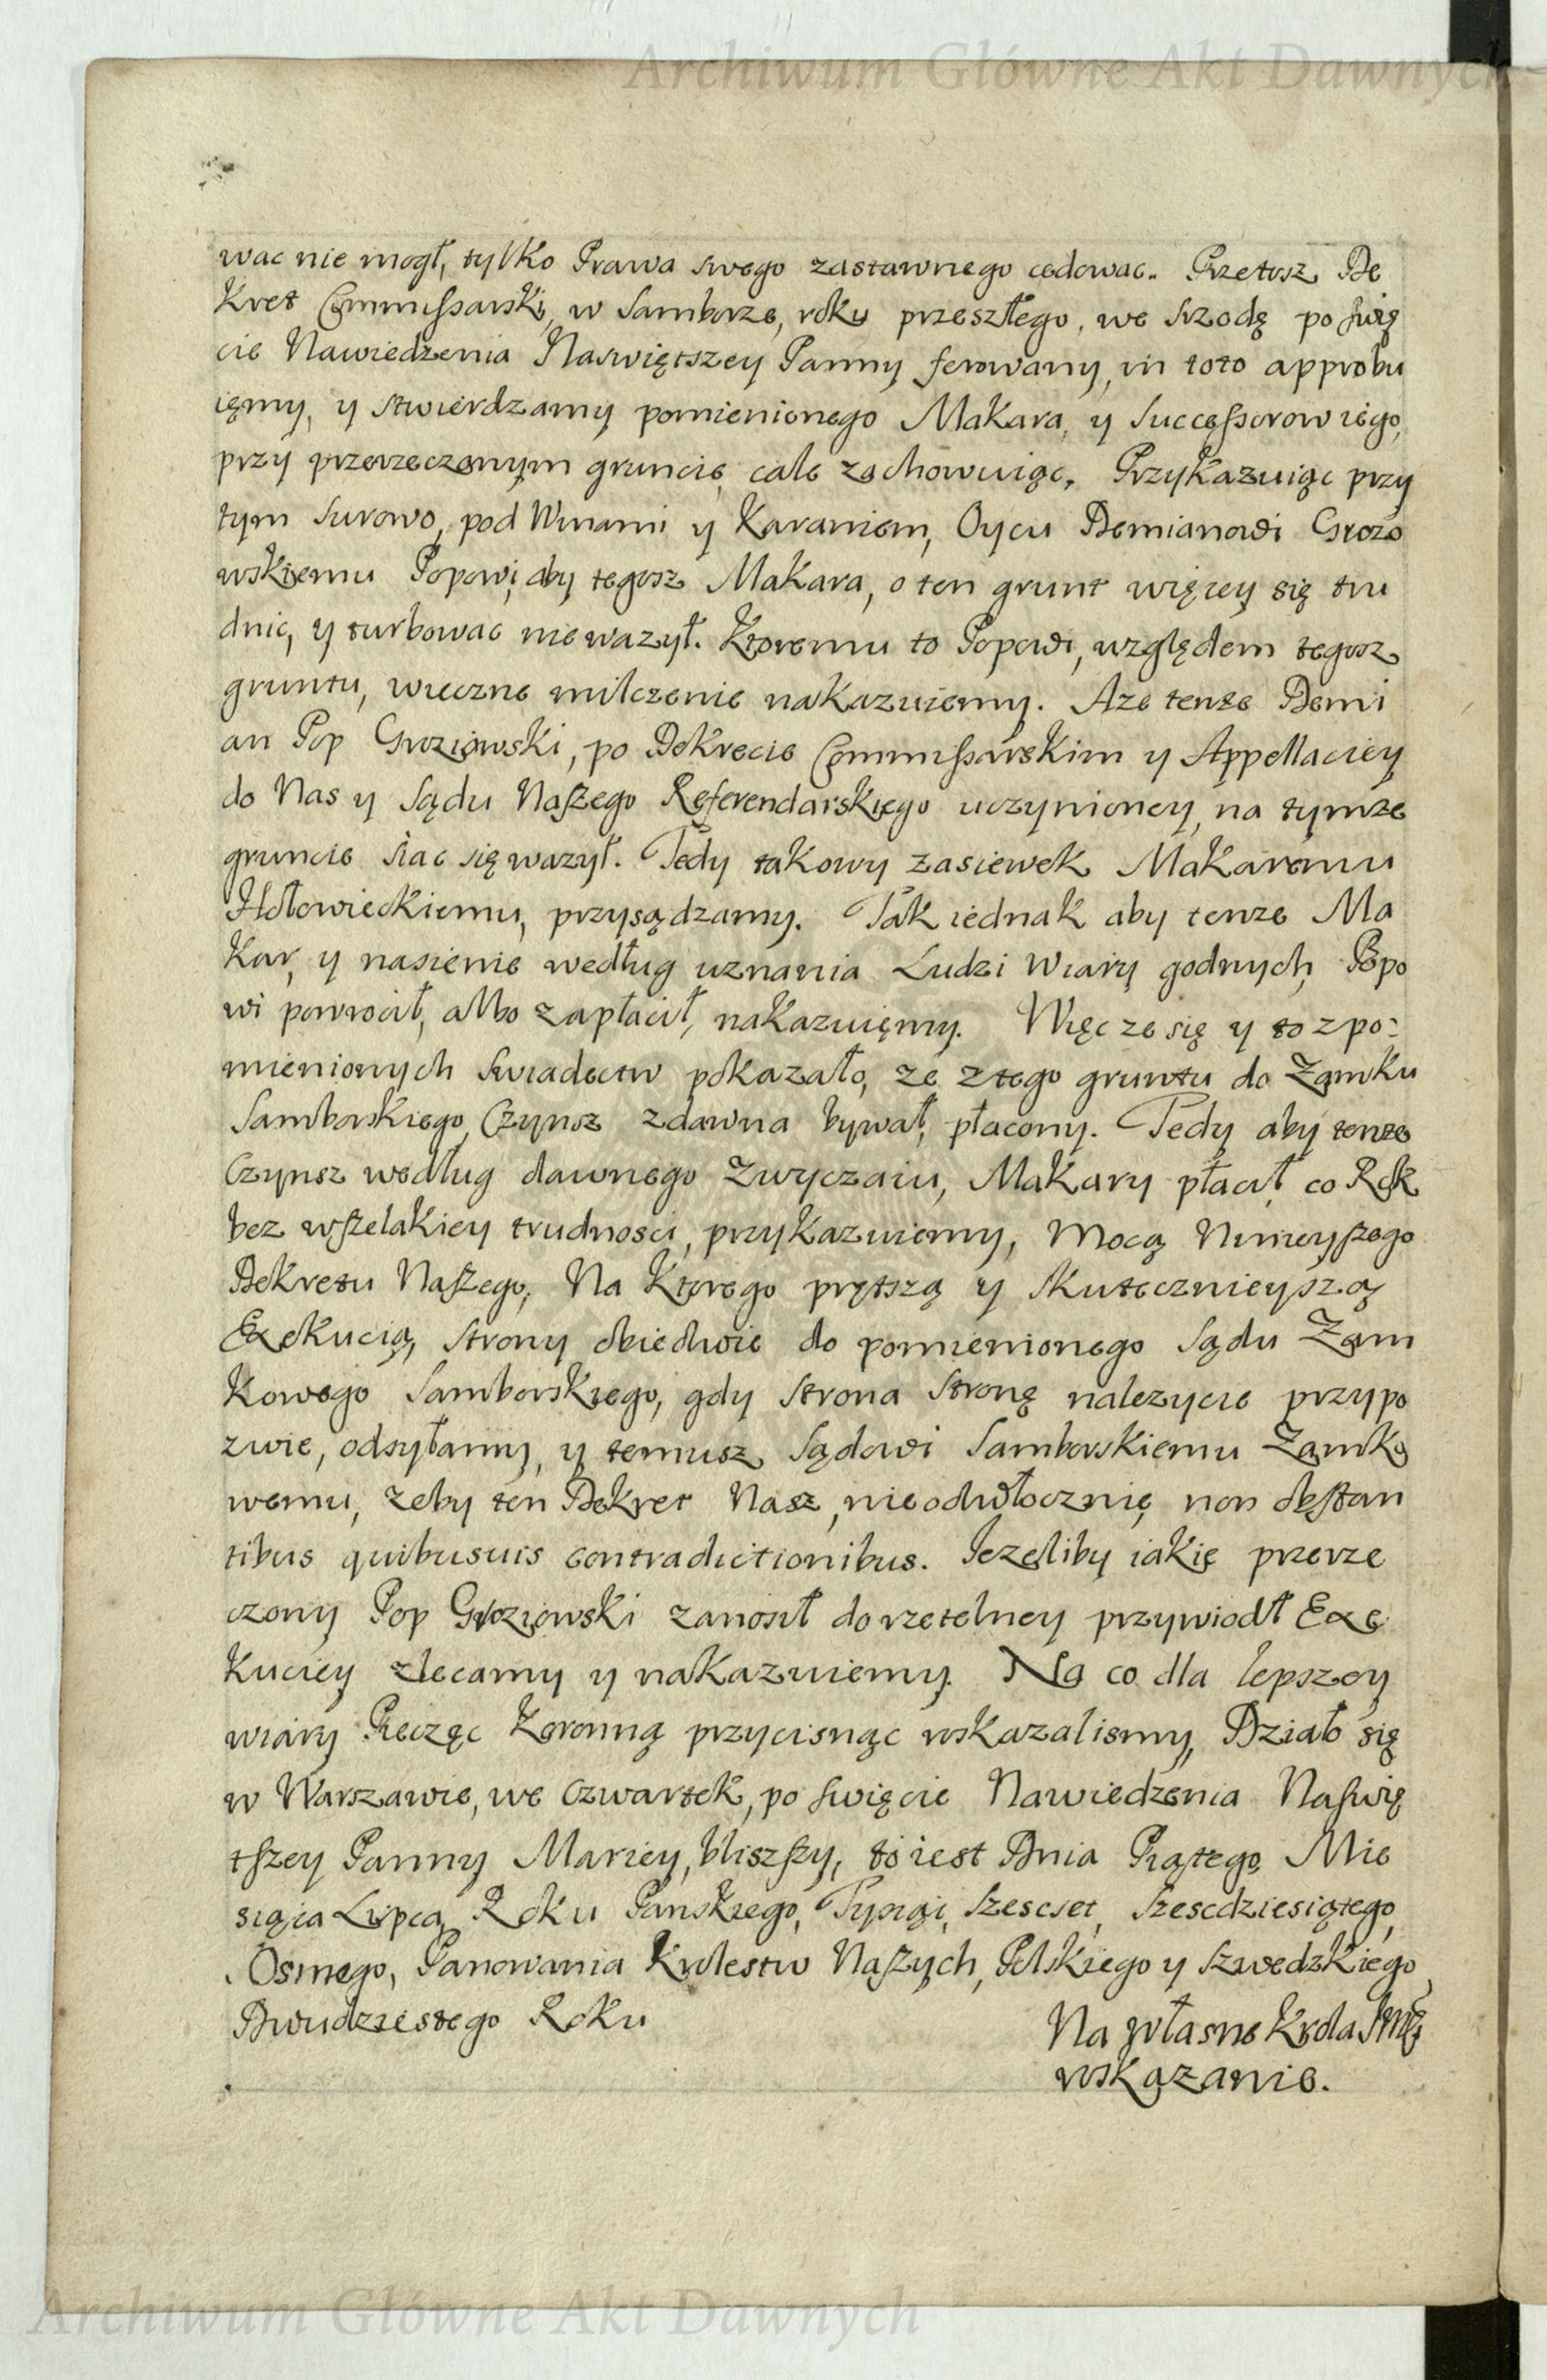 Archiwum Główne Akt Dawnych
wac nie mogł, tylko Prawa swego zastawnego cedowac. Przetosz De
kret Commissarski, w Samborze, roku przeszłego, we Srzodę po Swię
cie Nawiedzenia Naswiętszey Panny ferowany, in toto approbu
ięmy, y stwierdzamy pomienionego Makara, y Successorow iego,
przy przerzeczonym gruncie cale zachowuiąc. Przykazuiąc przy
tym surowo, pod Winami y Karaniem, Oycu Demianowi Grozo
wskiemu Popowi, aby tegosz Makara, o ten grunt więcey się tru
dnic, y turbowac nie wazył. Ktoremu to Popowi, względem tegosz
gruntu, wieczne milczenie nakazuiemy. Aze tenze Demi
an Pop Groziowski, po Dekrecie Commissarskim y Appellaciey
do Nas y Sądu Naszego Referendarskiego uczynioney, na tymze
gruncie siac się wazył. Tedy takowy zasiewek Makaremu
Hołowieckiemu, przysądzamy. Tak iednak aby tenze Ma
kar, y nasienie według uznania Ludzi Wiary godnych, Popo
wi powrocił, albo zapłacił, nakazuięmy. Więc ze się y to z po:
mienionych Swiadectw pokazało, ze z tego gruntu do Zamku
Samborskiego, Czynsz zdawna bywał, płacony. Tedy aby tenze
Czynsz według dawnego Zwyczaiu, Makary płacił, co Rok
bez wszelakiey trudnosci, przykazuiemy, Mocą Ninieyszego
Dekretu Naszego, Na Ktorego prętszą y skutecznieyszą
Exekucią, strony obiedwie do pomienionego Sądu Zam
kowego Samborskiego, gdy Strona Stronę nalezycie przypo
zwie, odsyłamy, y temusz Sądowi Samborskiemu Zamko
wemu, zeby ten Dekret Nasz, nieodwłocznię non obstan
tibus quibusuis contradictionibus. Jezeliby iakię przerze
czony Pop Groziowski zanosił do rzetelney przywiodł Exe
kuciey zlecamy y nakazuiemy. Na co dla lepszey
wiary Pieczęc Koronną przycisnąc roskazalismy, Działo się
w Warszawie, we Czwartek, po Swięcie Nawiedzenia Naswię
tszey Panny Mariey, bliszszy, to iest Dnia Piątego, Mie
siąca Lipca, Roku Panskiego, Tysiąc, Szescset, Szescdziesiątego,
Osmego, Panowania Krolestw Naszych, Polskiego y Szwedzkiego,
Dwudziestego Roku
Na własne Krola Jmci
roskazanie.
Archiwum Główne Akt Dawnych